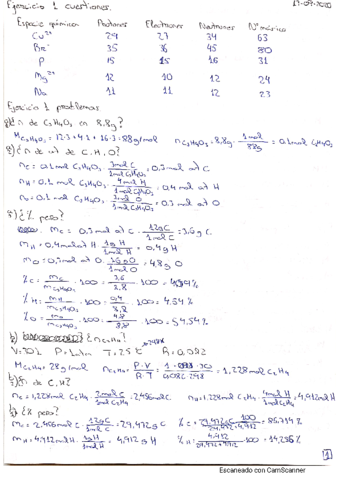 Ejercicio 1 cuestiones.
Especie química Protones Electrones Neutrones Nº másico
Cu²⁺ 29 27 34 63
Br⁻ 35 36 45 80
P 15 15 16 31
Mg²⁺ 12 10 12 24
Na 11 11 12 23
Ejercicio 1 problemas
n de C₃H₄O₃ en 8,8g?
M C₃H₄O₃ = 12·3+4·1+16·3=88g/mol n C₃H₄O₃ = 8,8g · 1mol/88g = 0.1mol C₃H₄O₃
¿n de at de C, H, O?
nc = 0.1mol C₃H₄O₃ · 3mol C/1mol C₃H₄O₃ = 0,3mol at C
nH = 0.1 mol C₃H₄O₃ · 4mol H/1mol C₃H₄O₃ = 0,4 mol at H
no = 0.1 mol C₃H₄O₃ · 3mol O/1mol C₃H₄O₃ = 0,3 mol at O
¿% peso?
mc = 0,3 mol at C · 12gC/1mol C = 3,6g C
mH = 0.4mol at H · 1g H/1mol H = 0,4g H
mO = 0,3mol at O · 16gO/1mol O = 4,8g O
%C = mc/m C₃H₄O₃ · 100 = 3,6/8,8 · 100 =
%H = mH/m C₃H₄O₃ · 100 = 0,4/8,8 · 100 = 4.54%
%O = mo/m C₃H₄O₃ · 100 = 4.8/8.8 · 100 = 54,54%
b) ¿n C₂H₄?
P=1atm T=25ºC R=0.082
M C₂H₄ = 28g/mol n C₂H₄ = P·V/R·T = 1·30/0.082·298 = 1,228mol C₂H₄
¿n de C, H?
nc = 1,228mol C₂H₄ · 2mol C/1mol C₂H₄ = 2,456mol C nH = 1.228mol C₂H₄ · 4mol H/1mol C₂H₄ = 4,912mol H
¿% peso?
mc = 2.456mol C · 12gC/1mol C = 29,472g C %C = 29,472·100/29.472+4.912 = 85.714%
mH = 4,912mol H · 1gH/1mol H = 4,912g H %H = 4.912/29.472+4.912 · 100 =
1
Escaneado con CamScanner